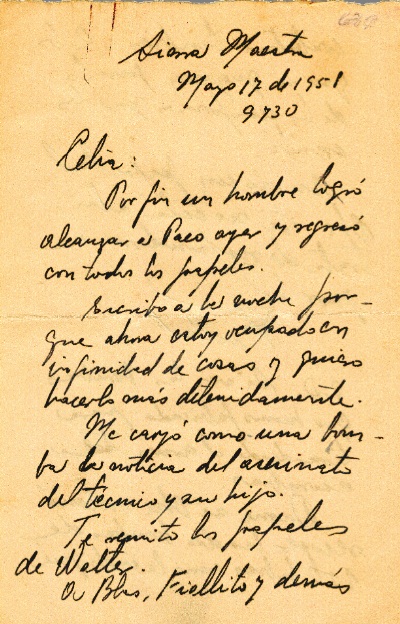 Sierra Maestra
Mayo 17 de 1958
9 y 30
Celia:
Por fin un hombre logró
alcanzar a Paco ayer y regresó
con todos los papeles.
Escribo a la noche por-
que ahora estoy ocupado en
infinidad de cosas y quiero
hacerlo más detenidamente.
Me cayó como una bom-
ba la noticia del asesinato
del técnico y su hijo.
Te remito los papeles
de Walter.
A Blas, Fiellito y demás